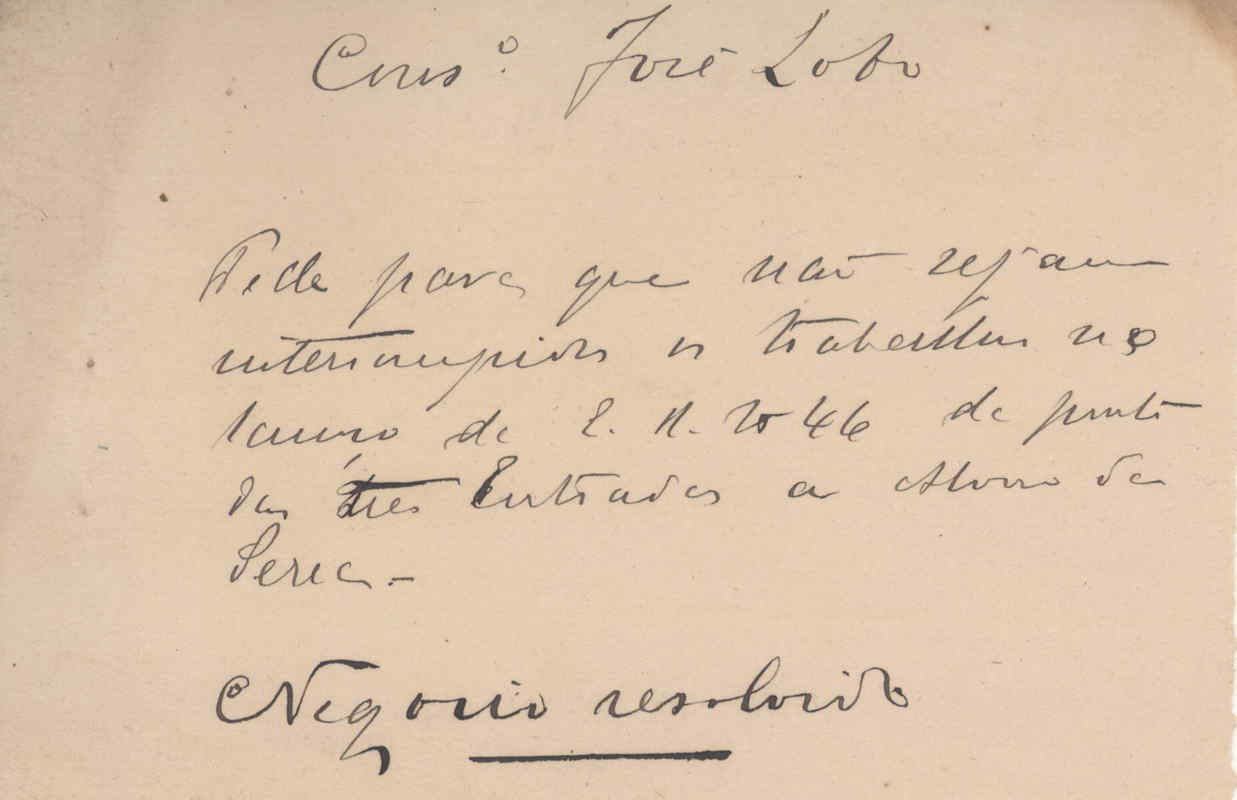 Cons.º José Lobo
Pede para que não sejam
interrompidos os trabalhos no
lanço da E. R. nº 46 da ponte
das três Entradas a Alvoco da
Serra.-
Negocio resolvido